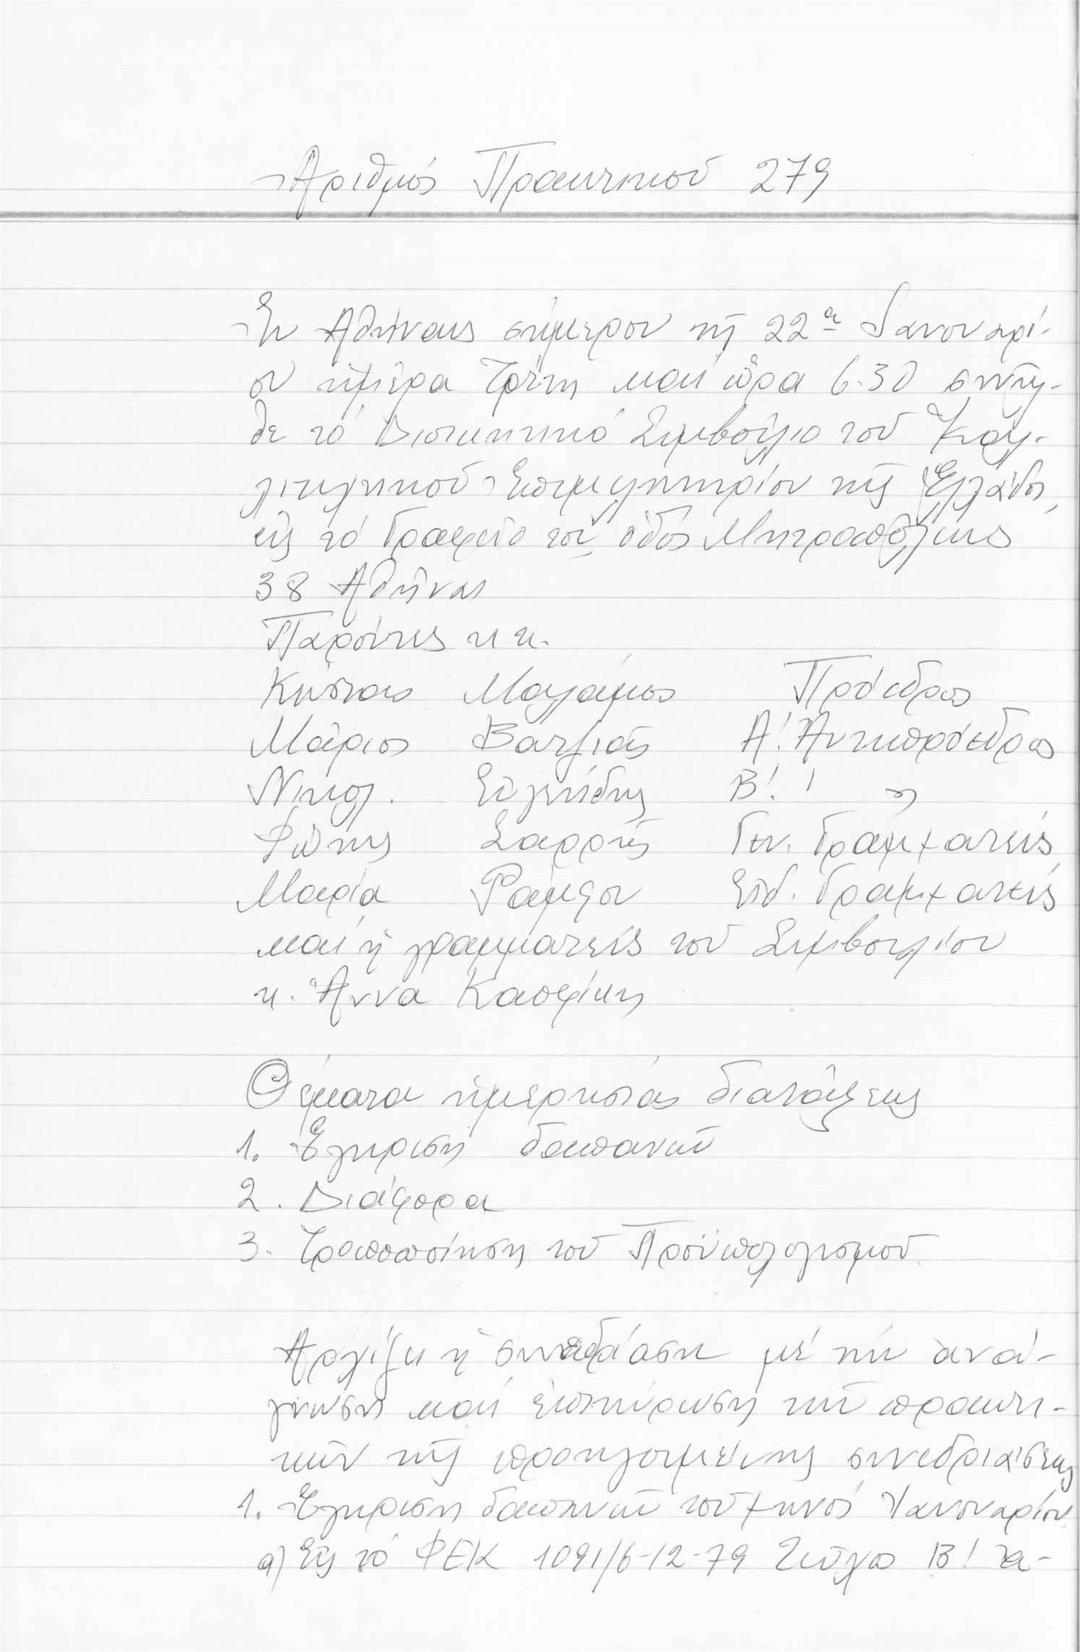 Ἀριθμός Πρακτικοῦ 279
Ἐν Ἀθήναις σήμερον τῇ 22α Ἰανουαρί-
ου ἡμέρα Τρίτη καί ὥρα 6.30 συνῆλ-
θε τό Διοικητικό Συμβούλιο τοῦ Καλ-
λιτεχνικοῦ Ἐπιμελητηρίου τῆς Ἑλλάδος,
εἰς τό Γραφεῖο του ὁδός Μητροπόλεως
38 Ἀθήνας
Παρόντες κ κ.
Κώστας Μαλάμος Πρόεδρος
Μάριος Βατζιᾶς Α! Ἀντιπρόεδρος
Νικολ. Εὐγενίδης Β! ! "
Φώτης Σαρρῆς Γεν. Γραμματεύς
Μαρία Ράμφου Εἰδ. Γραμματεύς
καί ἡ γραμματεύς τοῦ Συμβουλίου
κ. Ἄννα Καφίκη
Θέματα ἡμερησίας διατάξεως
1. Ἔγκριση δαπανῶν
2. Διάφορα
3. Τροποποίηση τοῦ Προϋπολογισμοῦ
Ἀρχίζει ἡ συνεδρίαση μέ τήν ἀνά-
γνωση καί ἐπικύρωση τῶν πρακτι-
κῶν τῆς προηγουμένης συνεδριάσεως
1. Ἔγκριση δαπανῶν τοῦ μηνός Ἰανουαρίου
α) Εἰς τό ΦΕΚ 1091/6-12-79 Τεῦχος Β! τα-